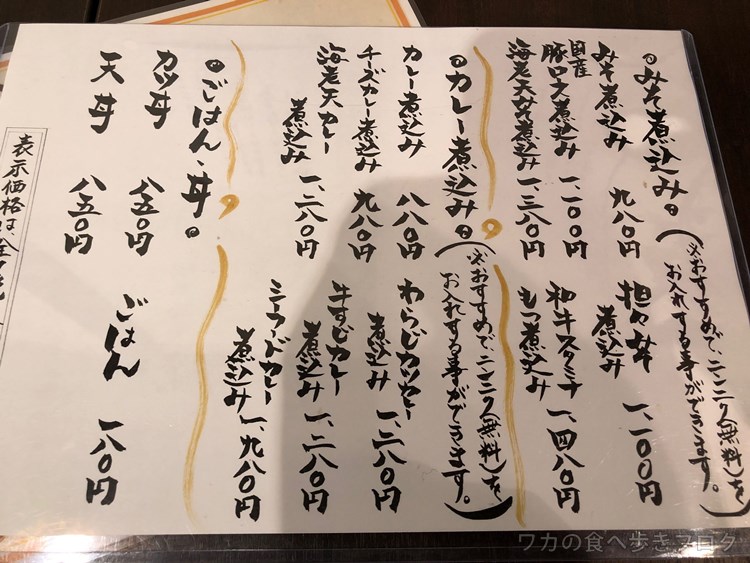 みそ煮込み
(※おすすめで、ニンニク(無料)を、
お入れする事ができます。)
みそ煮込み 九八〇円
国産
豚ロース煮込み 一、一〇〇円
海老天みそ煮込み 一、三八〇円
担々
煮込み 一、一〇〇円
和牛スタミナ
もつ煮込み 一、四八〇円
カレー煮込み
(※おすすめで、ニンニク(無料)を、
お入れする事ができます。)
カレー煮込み 八八〇円
チーズカレー煮込み 九八〇円
海老天カレー
煮込み 一、二八〇円
わらじカツカレー
煮込み 一、二八〇円
牛すじカレー
煮込み 一、二八〇円
カレー
煮込み 一、九八〇円
ごはん、丼
カツ丼 八五〇円
天丼 八五〇円
ごはん 一八〇円
表示価格は、全て
ワカの食べ歩きブログ